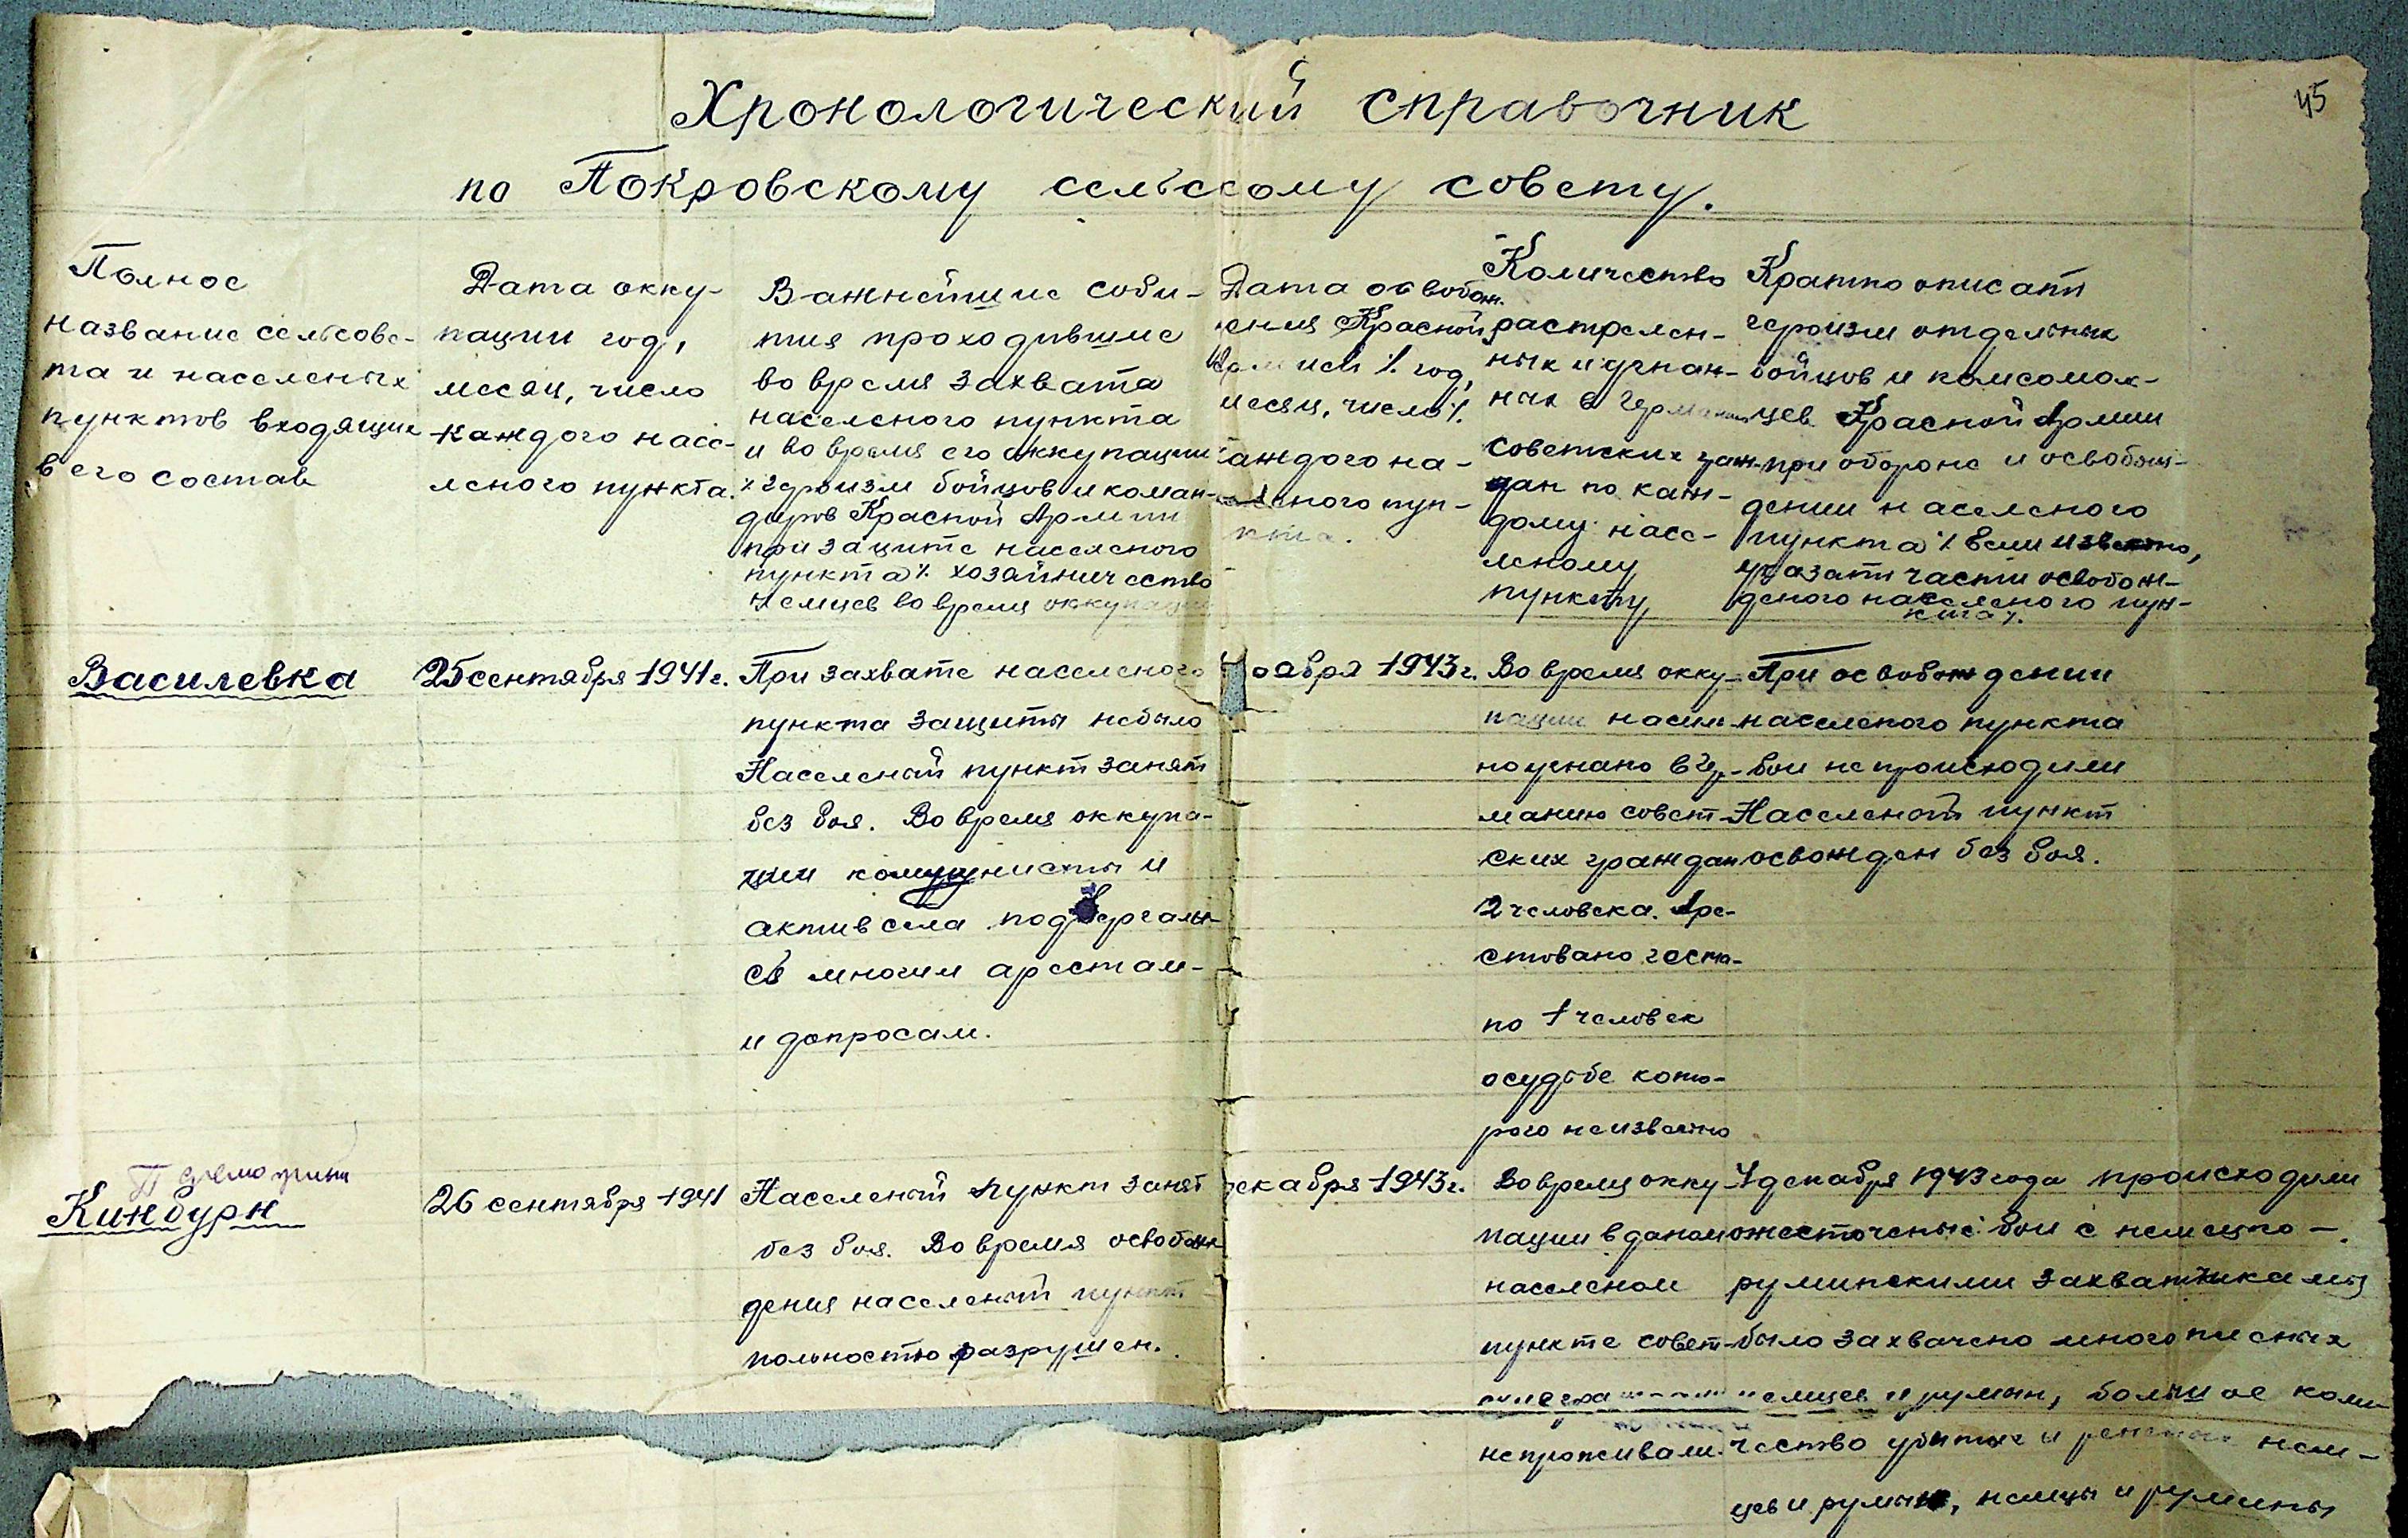 45
Хронологический справочник
по Покровскому сельсому совету.
Полное
название сельсове-
та и населеных
пунктов входящих
в его состав
Дата окку-
пации год,
месяц, число
каждого насе-
леного пункта.
Важнейшие собы-
тия проходившие
во время захвата
населеного пункта
и во время его оккупации
% героизм бойцов и коман-
диров Красной Армии
при защите населеного
пункта % хозяйничество
немцев во время оккупации
Дата освобож.
дения Красной
Армией % год,
месяц, число %
каждого на-
селеного пун-
кта.
Количество
растрелен-
ных и угнан-
ных в Германию
советских граж-
дан по каж-
дому насе-
леному
пункту
Кратко описать
героизм отдельных
бойцов и комсомол-
цев Красной Армии
при обороне и освобож-
дении населеного
пункта % Если известно,
указать части освобож-
деного населеного пун-
кта %.
Василевка
25 сентября 1941 г.
При захвате населеного
пункта защиты небыло
Населеный пункт занят
без боя. Во время оккупа-
ции коммунисты и
актив села подвергали-
сь многим арестам-
и допросам.
оября 1943 г.
Во время окку-
пации насиль-
но угнано в Гер-
манию совет-
ских граждан
2 человека. Аре-
стовано геста-
по 1 человек
о судьбе кото-
рого неизвестно
При освобождении
населеного пункта
бои не происходили
Населеный пункт
освожден без боя.
Кинбурн
26 сентября 1941
Населеный пункт занят
без боя. Во время освобож-
дения населеный пункт
польностю разрушен.
декабря 1943 г.
Во время окку-
пации в даном
населеном
пункте совет-
непроживали.
4 декабря 1943 года происходили
ожесточеные бои с немецко-
румынскими захватчиками
было захвачено много пленых
немцев и румын, большое коли-
чество убитых и раненых нем-
цев и румын, немцы и румыны